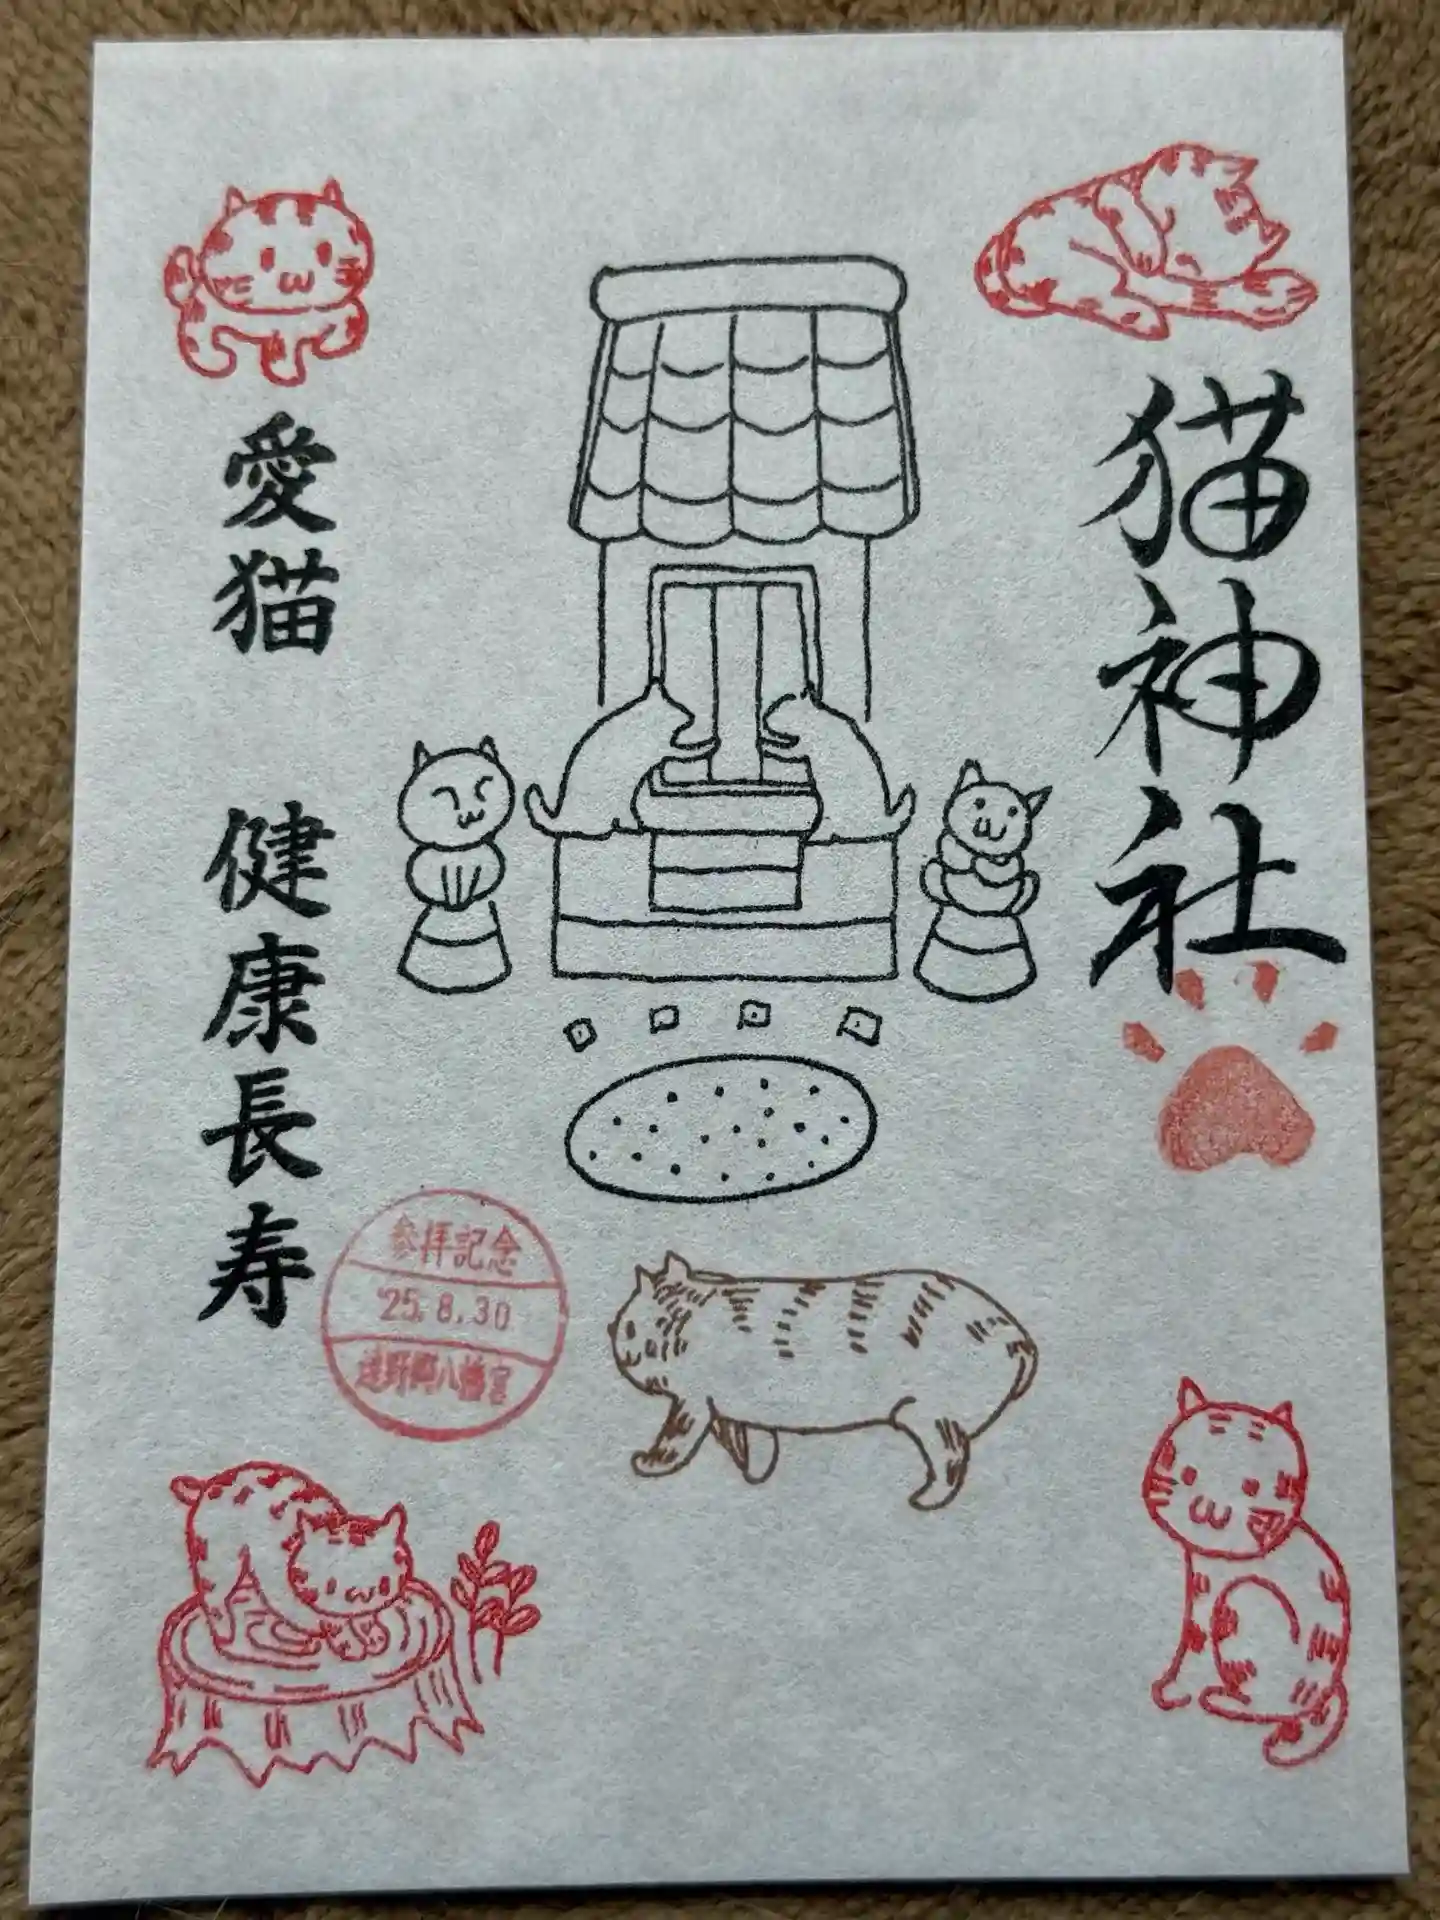 猫神社
愛猫 健康長寿
参拝記念
'25.8.30
遠野郷八幡宮